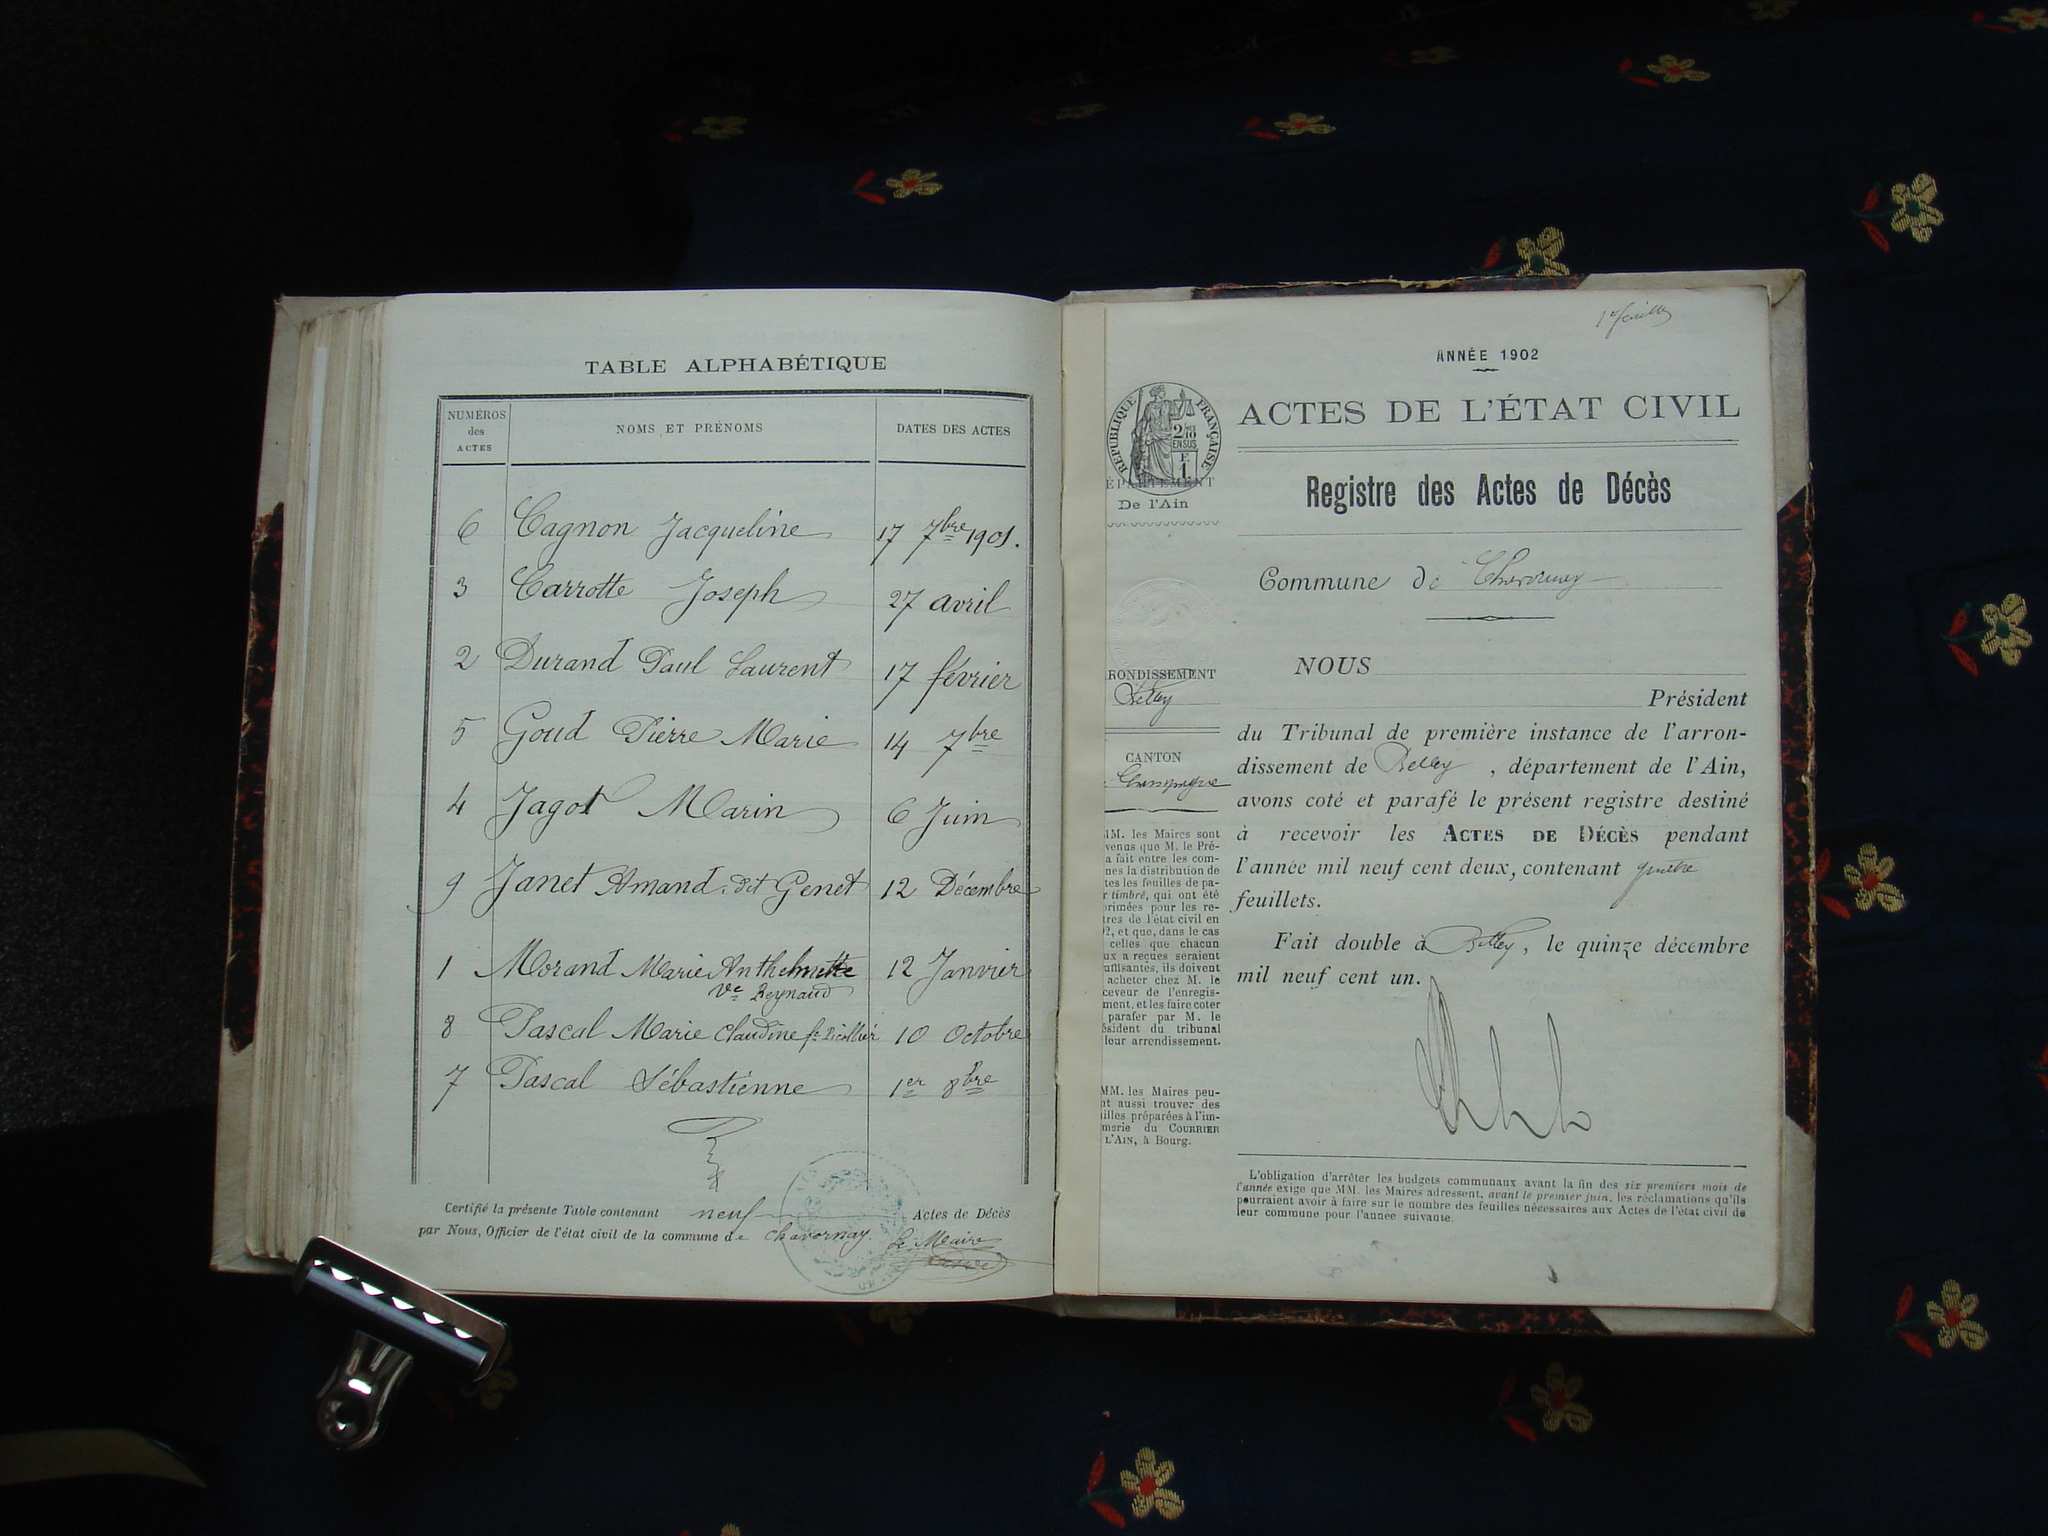 TABLE ALPHABÉTIQUE
NUMÉROS des ACTES NOMS ET PRÉNOMS DATES DES ACTES
6 Cagnon Jacqueline 17 7bre 1901.
3 Carrotte Joseph 27 avril
2 Durand Paul Laurent 17 février
5 Goud Pierre Marie 14 7bre
4 Jagot Marin 6 Juin
9 Janet Amand. dit Genet 12 Décembre
1 Morand Marie Anthelmette 12 Janvier
Ve Reynaud
8 Pascal Marie Claudine 10 Octobre
7 Pascal Sébastienne 1er 8bre
Certifié la présente Table contenant neuf Actes de Décès
par Nous, Officier de l'état civil de la commune de Chavornay. Le Maire
1er feuillet
ANNÉE 1902
ACTES DE L'ÉTAT CIVIL
RÉPUBLIQUE FRANÇAISE
2/10 EN SUS
F. 1
ÉPARTEMENT
De l'Ain
Registre des Actes de Décès
Commune de Chavornay
RONDISSEMENT
Belley
CANTON
Champagne
MM. les Maires sont
venus que M. le Pré-
a fait entre les com-
nes la distribution de
tes les feuilles de pa-
r timbré, qui ont été
primées pour les re-
tres de l'état civil en
2, et que, dans le cas
celles que chacun
ux a reçues seraient
uffisantes, ils doivent
acheter chez M. le
ceveur de l'enregis-
ment, et les faire coter
parafer par M. le
ésident du tribunal
leur arrondissement.
MM. les Maires peu-
nt aussi trouver des
illes préparées à l'im-
merie du COURRIER
L'AIN, à Bourg.
NOUS
Président
du Tribunal de première instance de l'arron-
dissement de Belley, département de l'Ain,
avons coté et parafé le présent registre destiné
à recevoir les ACTES DE DÉCÈS pendant
l'année mil neuf cent deux, contenant quatre
feuillets.
Fait double à Belley, le quinze décembre
mil neuf cent un.
L'obligation d'arrêter les budgets communaux avant la fin des six premiers mois de
l'année exige que MM. les Maires adressent, avant le premier juin, les réclamations qu'ils
pourraient avoir à faire sur le nombre des feuilles nécessaires aux Actes de l'état civil de
leur commune pour l'année suivante.